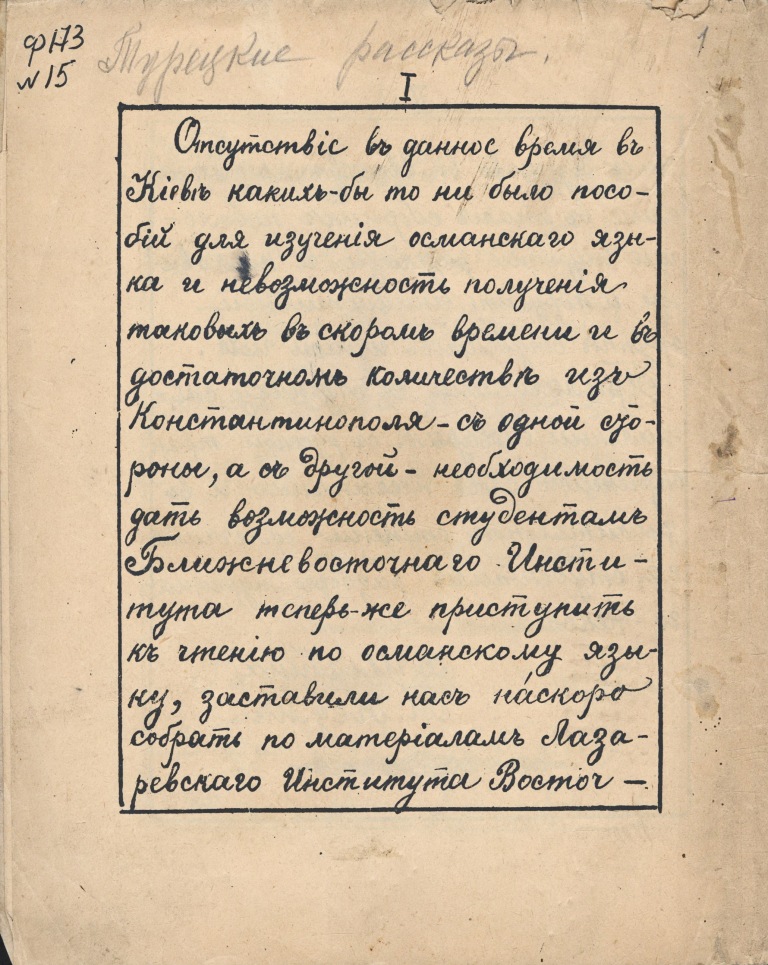 ф173
№15
Турецкие рассказы.
1
I
Отсутствіе въ данное время въ
Кіевѣ какихъ-бы то ни было посо-
бій для изученія османскаго язы-
ка и невозможность полученія
таковыхъ въ скоромъ времени и въ
достаточномъ количествѣ изъ
Константинополя - съ одной сто-
роны, а съ другой - необходимость
дать возможность студентамъ
Ближневосточнаго Инсти-
тута теперь-же приступить
къ чтенію по османскому язы-
ку, заставили насъ на́скоро
собрать по матеріаламъ Лаза-
ревскаго Института Восточ-